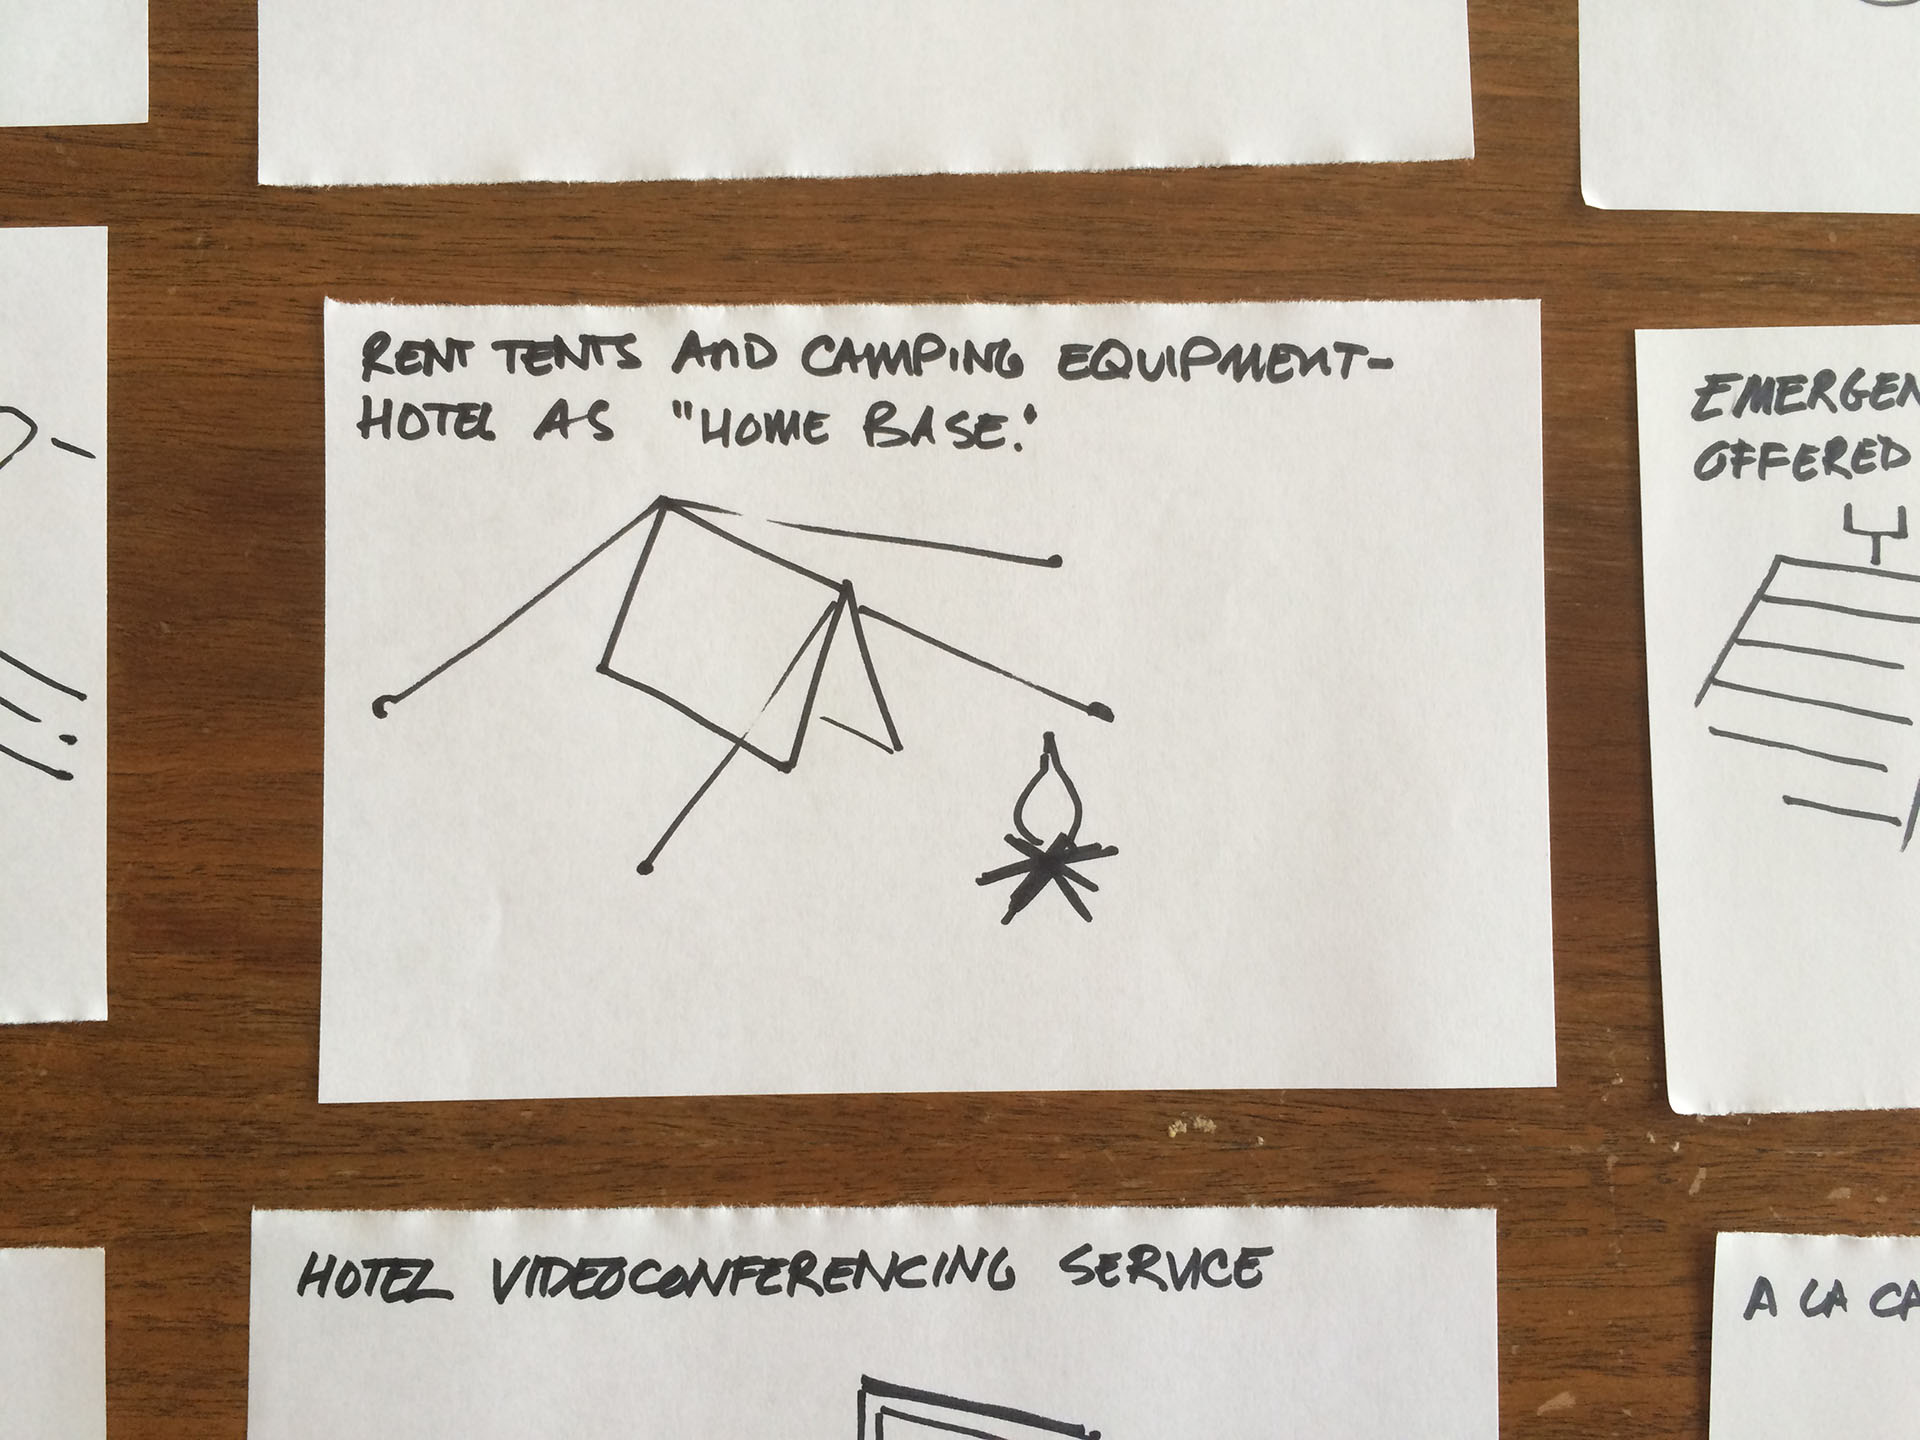 RENT TENTS AND CAMPING EQUIPMENT-
HOTEL AS "HOME BASE."
EMERGEN
OFFERED
HOTEL VIDEOCONFERENCING SERVICE
A LA CA